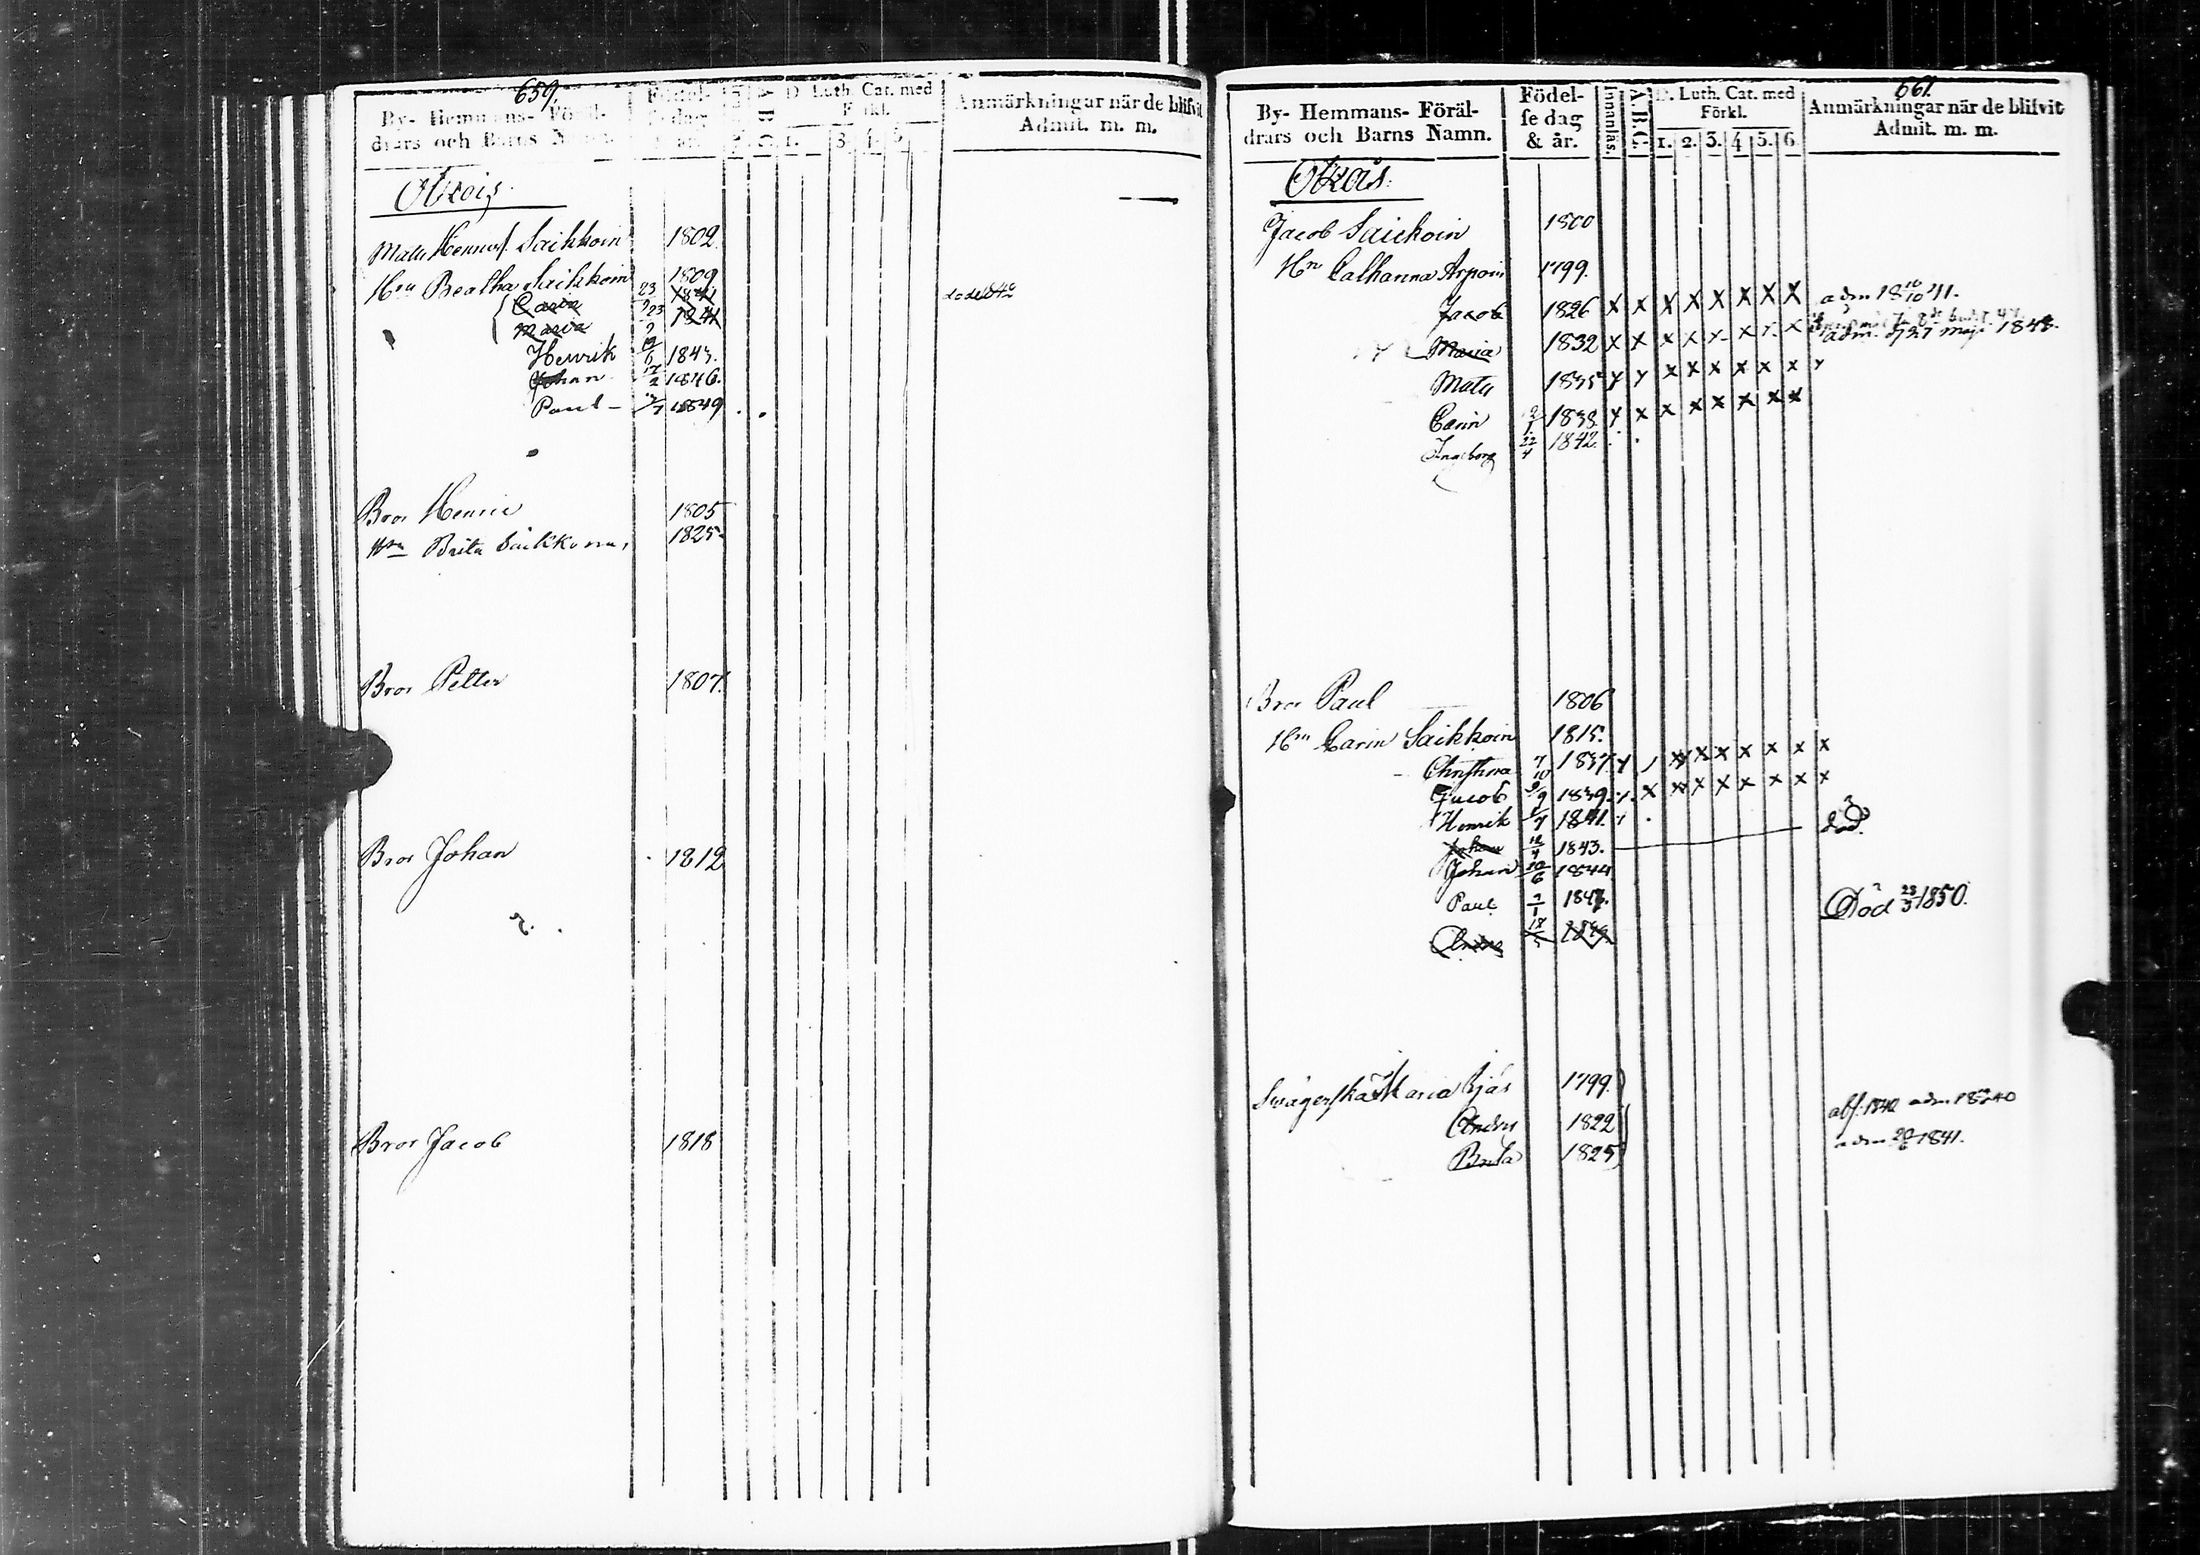 659.
By- Hemmans- Föräl-
drars och Barns Namn.
Födel-
se dag
& år.
A. B. C.
D. Luth. Cat. med
Förkl.
1. 3. 4. 5.
Anmärkningar när de blifvit
Admit. m. m.
Matts Saikkoin 1802
Hru Beatha Saikkoin 1809
Carin 23/9 1841
Maria 23/9 1841
Henrik 19/6 1843.
Johan 17/2 1846.
Paul 1849
Bror Henric 1805
Hru Brita Saikkonen 1825
Bror Petter 1807.
Bror Johan 1812
Bror Jacob 1818
661.
By- Hemmans- Föräl-
drars och Barns Namn.
Födel-
se dag
& år.
Innanläs.
A. B. C.
D. Luth. Cat. med
Förkl.
1. 2. 3. 4 5. 6
Anmärkningar när de blifvit
Admit. m. m.
Jacob Saickoin 1800
Hru Catharina Arpoin 1799.
Jacob 1826 x x x x x x x x adm 18 10/10 41.
Maria 1832 x x x x x x x x adm. d 27 maji 1848.
Matts 1835 x x x x x x x x x
Carin 2/1 1838 x x x x x x x x
Ingeborg 22/4 1842.
Bror Paul 1806
Hru Carin Saikkoin 1815.
Christina 7/10 1837 x x x x x x x x
Jacob 9/9 1839. x x x x x x x x
Henrik 1841.
Johan 12/4 1843. död.
Johan 20/6 1844
Paul 1847.
Död 23/3 1850.
Anders 18/5 1849
Swägerska Maria Kjäs 1799.
Anders 1822 abs. 1840 adm 18
Brita 1825 adm 1841.